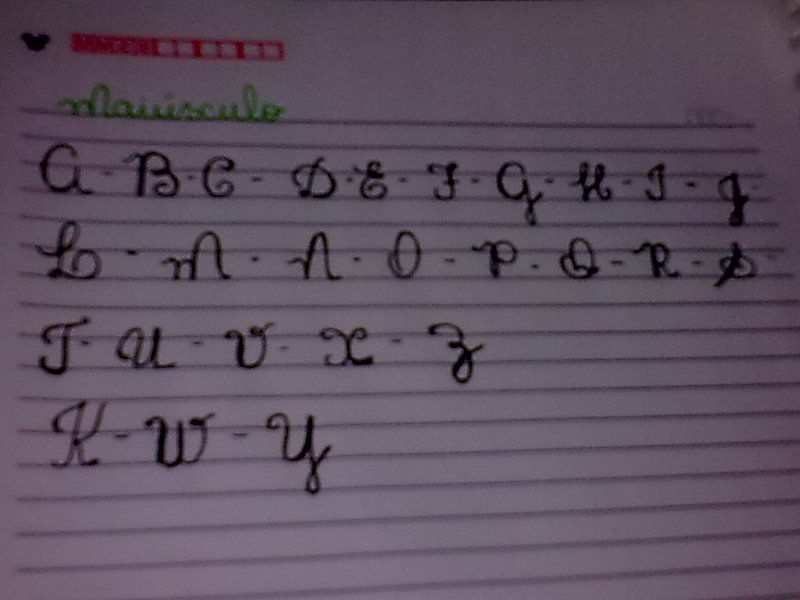 Maiúsculo
A - B - C - D - E - F - G - H - I - J
L - M - N - O - P - Q - R - S
T - U - V - X - Z
K - W - Y